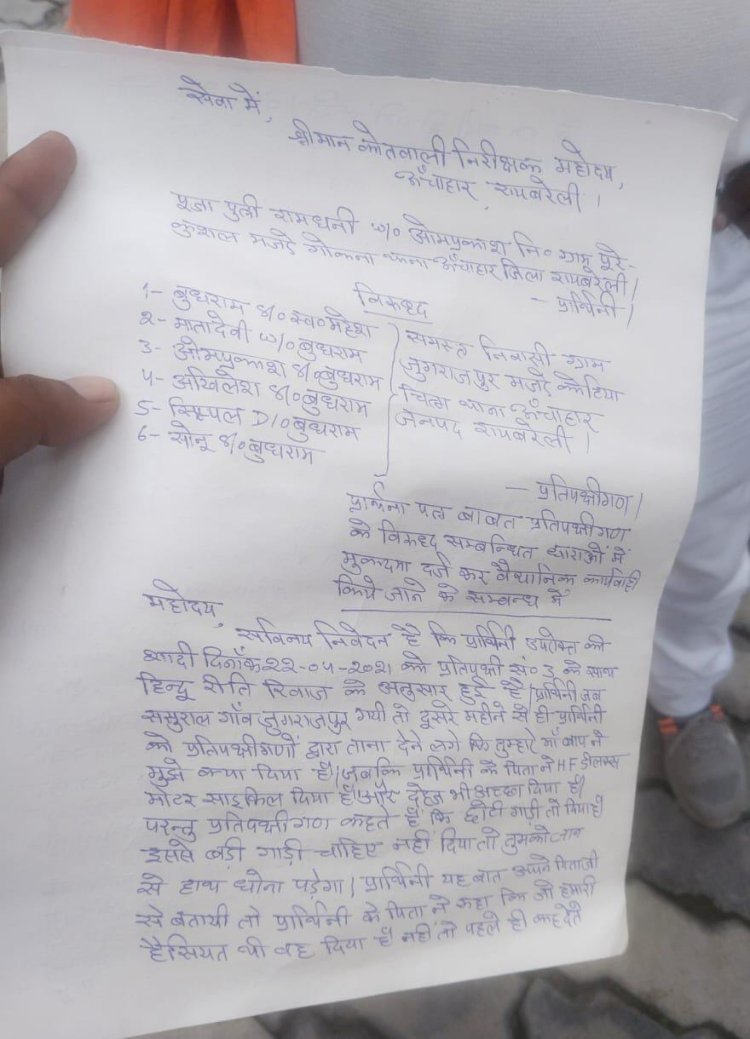 सेवा में,
श्रीमान कोतवाली निरीक्षक महोदय,
ऊँचाहार, रायबरेली।
पूजा पुत्री रामधनी w/o ओमप्रकाश नि० ग्राम पूरे-
कुशल मजरे गोकना थाना ऊँचाहार जिला रायबरेली।
- प्रार्थिनी।
विरुध्द
1- बुधराम s/o स्व० महेश
2- मातादेवी w/o बुधराम
3- ओमप्रकाश s/o बुधराम
4- अखिलेश s/o बुधराम
5- सिम्पल D/o बुधराम
6- सोनू s/o बुधराम
समस्त निवासी ग्राम
जुगराजपुर मजरे कोटिया
चित्रा थाना ऊँचाहार
जनपद रायबरेली।
- प्रतिपक्षीगण।
प्रार्थना पत्र बाबत प्रतिपक्षीगण
के विरुध्द सम्बन्धित धाराओं में
मुकदमा दर्ज कर वैधानिक कार्यवाही
किये जाने के सम्बन्ध में
महोदय,
सविनय निवेदन है कि प्रार्थिनी उपरोक्त की
शादी दिनाँक 22-04-2021 को प्रतिपक्षी सं० 3 के साथ
हिन्दू रीति रिवाज के अनुसार हुई है। प्रार्थिनी जब
ससुराल गाँव जुगराजपुर गयी तो दूसरे महीने से ही प्रार्थिनी
को प्रतिपक्षीगणों द्वारा ताना देने लगे कि तुम्हारे माँ बाप ने
मुझे क्या दिया है। जबकि प्रार्थिनी के पिता ने HF डीलक्स
मोटर साइकिल दिया है। और देहज भी अच्छा दिया है।
परन्तु प्रतिपक्षीगण कहते हैं कि छोटी गाड़ी तो दिया है
इससे बड़ी गाड़ी चाहिए नहीं दिया तो तुमको जान
से हाथ धोना पड़ेगा। प्रार्थिनी यह बात अपने पिताजी
से बतायी तो प्रार्थिनी के पिता ने कहा कि जो हमारी
हैसियत थी वह दिया है नहीं तो पहले ही कह देते